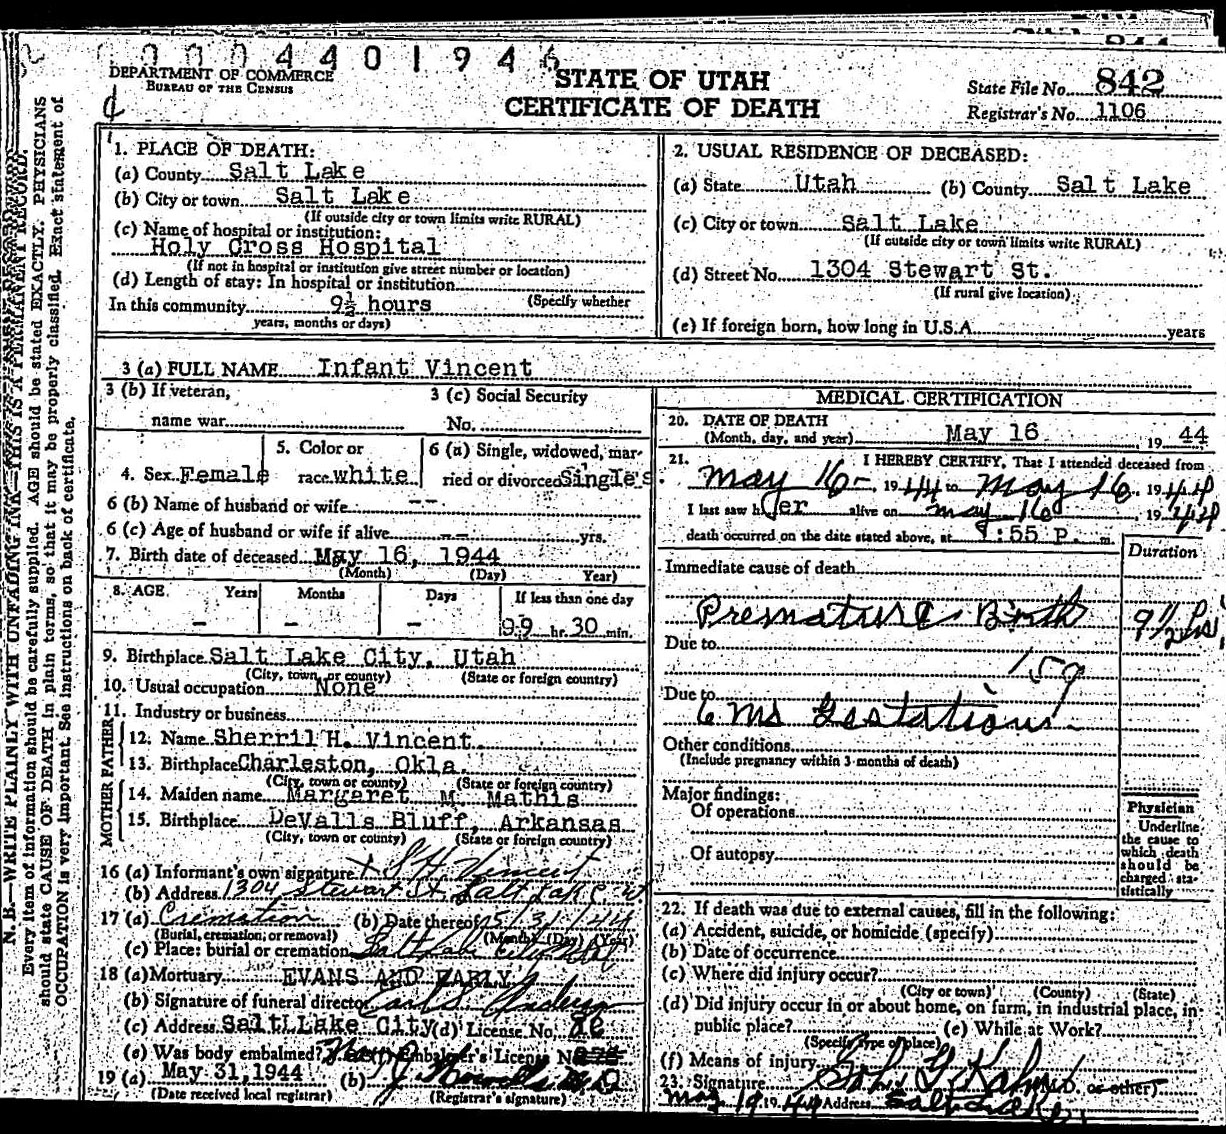 0 0 0 4 4 0 1 9 4 6
DEPARTMENT OF COMMERCE
BUREAU OF THE CENSUS
STATE OF UTAH
CERTIFICATE OF DEATH
State File No. 842
Registrar's No. 1106
N. B.—WRITE PLAINLY WITH UNFADING INK—THIS IS A PERMANENT RECORD.
Every item of information should be carefully supplied. AGE should be stated EXACTLY. PHYSICIANS
should state CAUSE OF DEATH in plain terms, so that it may be properly classified. Exact statement of
OCCUPATION is very important. See instructions on back of certificate.
1. PLACE OF DEATH:
(a) County Salt Lake
(b) City or town Salt Lake
(If outside city or town limits write RURAL)
(c) Name of hospital or institution:
Holy Cross Hospital
(If not in hospital or institution give street number or location)
(d) Length of stay: In hospital or institution
In this community 9½ hours (Specify whether
years, months or days)
2. USUAL RESIDENCE OF DECEASED:
(a) State Utah (b) County Salt Lake
(c) City or town Salt Lake
(If outside city or town limits write RURAL)
(d) Street No. 1304 Stewart St.
(If rural give location)
(e) If foreign born, how long in U.S.A. years
3 (a) FULL NAME Infant Vincent
3 (b) If veteran,
name war
3 (c) Social Security
No.
4. Sex Female
5. Color or
race white
6 (a) Single, widowed, mar-
ried or divorced Single
6 (b) Name of husband or wife --
6 (c) Age of husband or wife if alive -- yrs.
7. Birth date of deceased May 16, 1944
(Month) (Day) Year)
8. AGE Years Months Days If less than one day
- - - 9 hr. 30 min.
9. Birthplace Salt Lake City, Utah
(City, town or county) (State or foreign country)
10. Usual occupation None
11. Industry or business
FATHER
12. Name Sherril H. Vincent
13. Birthplace Charleston, Okla.
(City, town or county) (State or foreign country)
MOTHER
14. Maiden name Margaret M. Mathis
15. Birthplace DeValls Bluff, Arkansas
(City, town or county) (State or foreign country)
16 (a) Informant's own signature x S H Vincent
(b) Address 1304 Stewart St. Salt Lake
17 (a) Cremation (b) Date thereof 5/31/44
(Burial, cremation, or removal) (Month) (Day) (Year)
(c) Place: burial or cremation Salt Lake City
18 (a) Mortuary EVANS AND EARLY
(b) Signature of funeral director
(c) Address Salt Lake City (d) License No.
(e) Was body embalmed? (f) Embalmer's License No.
19 (a) May 31, 1944 (b)
(Date received local registrar) (Registrar's signature)
MEDICAL CERTIFICATION
20. DATE OF DEATH
(Month, day, and year) May 16, 19 44
21. I HEREBY CERTIFY, That I attended deceased from
May 16 - 19 44 to May 16, 19 44
I last saw her alive on May 16, 19 44
death occurred on the date stated above, at :55 P. m.
Duration
Immediate cause of death
Premature Birth 9½ hrs
Due to
159
Due to
6 Mo Gestation
Other conditions
(Include pregnancy within 3 months of death)
Major findings:
Of operations
Of autopsy
Physician
Underline
the cause to
which death
should be
charged sta-
tistically
22. If death was due to external causes, fill in the following:
(a) Accident, suicide, or homicide (specify)
(b) Date of occurrence
(c) Where did injury occur?
(City or town) (County) (State)
(d) Did injury occur in or about home, on farm, in industrial place, in
public place? (e) While at Work?
(Specify type of place)
(f) Means of injury
23. Signature or other)
May 19 19 44 Address Salt Lake